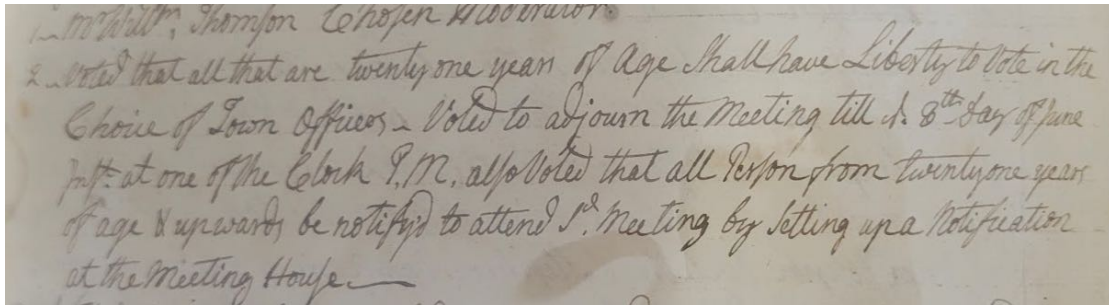 1 Mr Willm. Thomson Chosen Moderator.
2 Voted that all that are twenty one years of Age Shall have Liberty to Vote in the
Choice of Town Officers Voted to adjourn the Meeting till ye. 8th. day of June
Inst. at one of the Clock P.M. also Voted that all Person from twenty one years
of age & upwards be notify'd to attend Sd. Meeting by Setting up a Notification
at the Meeting House